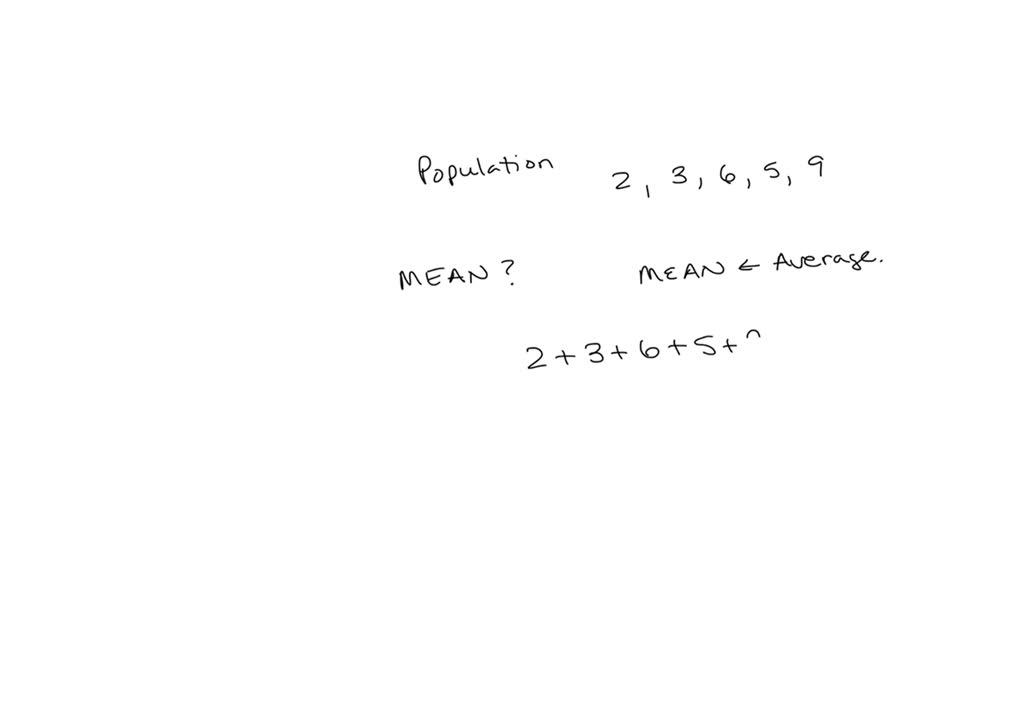 Population 2, 3, 6, 5, 9
MEAN? MEAN ← Average.
2 + 3 + 6 + 5 +